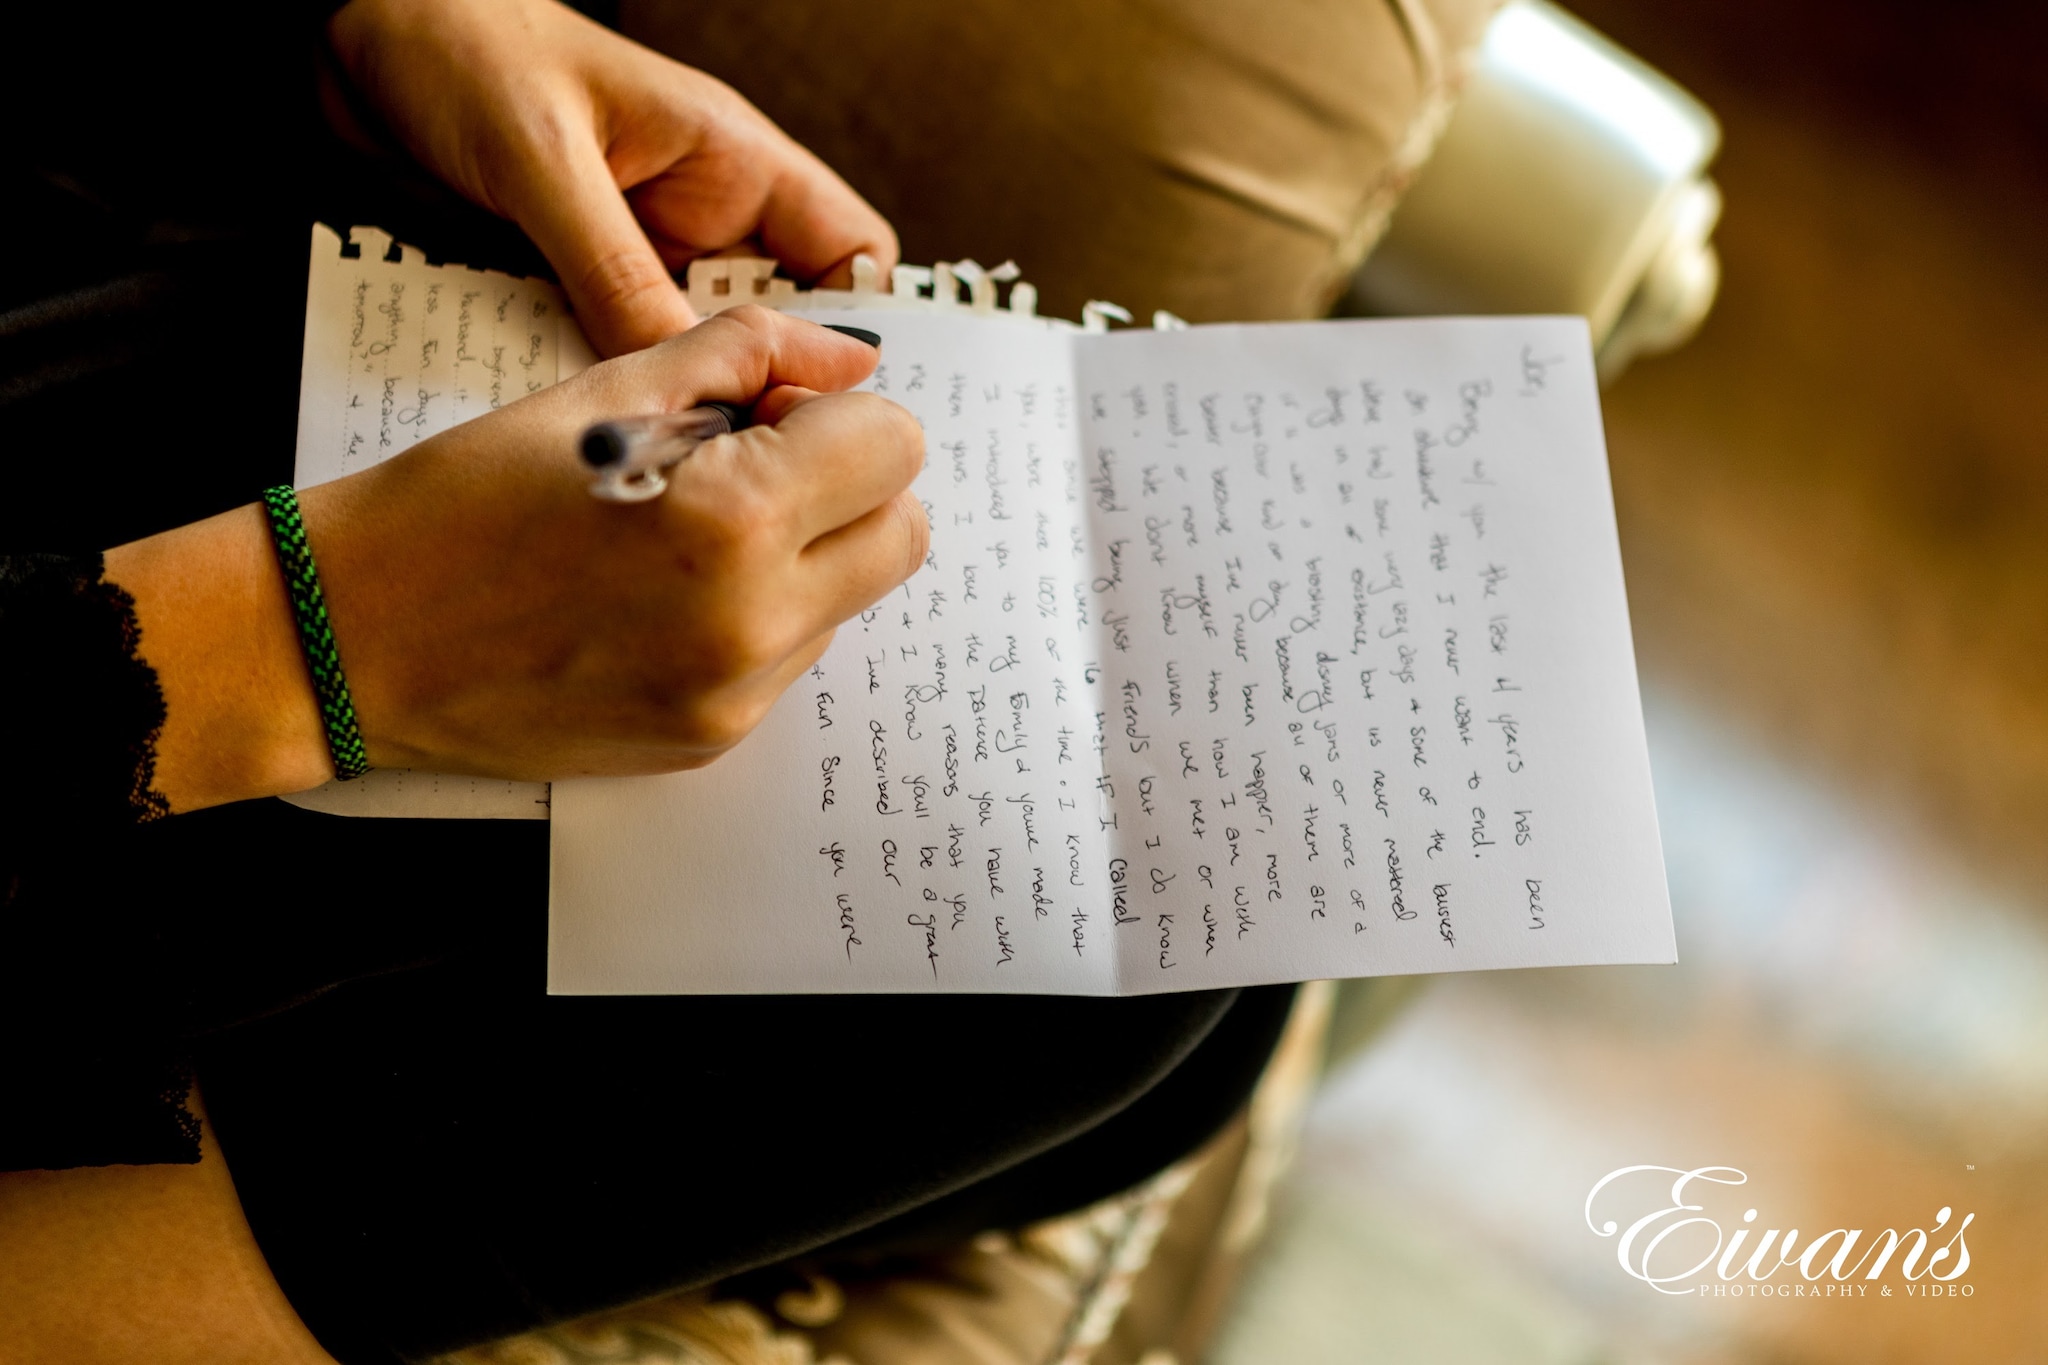 Joe,
Being w/ you the last 4 years has been
an adventure that I never want to end.
We've had some very lazy days & some of the busiest
days in all of existance, but its never mattered
if it was a blasting disney jams or more of a
kind of day because all of them are
better because I've never been happier, more
or more myself than how I am with
you. We dont know when we met or when
we stopped being just friends but I do know
since we were 16 that if I called
you, were there 100% of the time. I know that
I introduced you to my family & youve made
them yours. I love the patience you have with
me one of the many reasons that you
are & I know youll be a great
I've described our
& fun since you were
as easy, s
"not boyfriend
husband, it
less fun days,
anything because
tomorrow?" & the
Eivan's
PHOTOGRAPHY & VIDEO
™